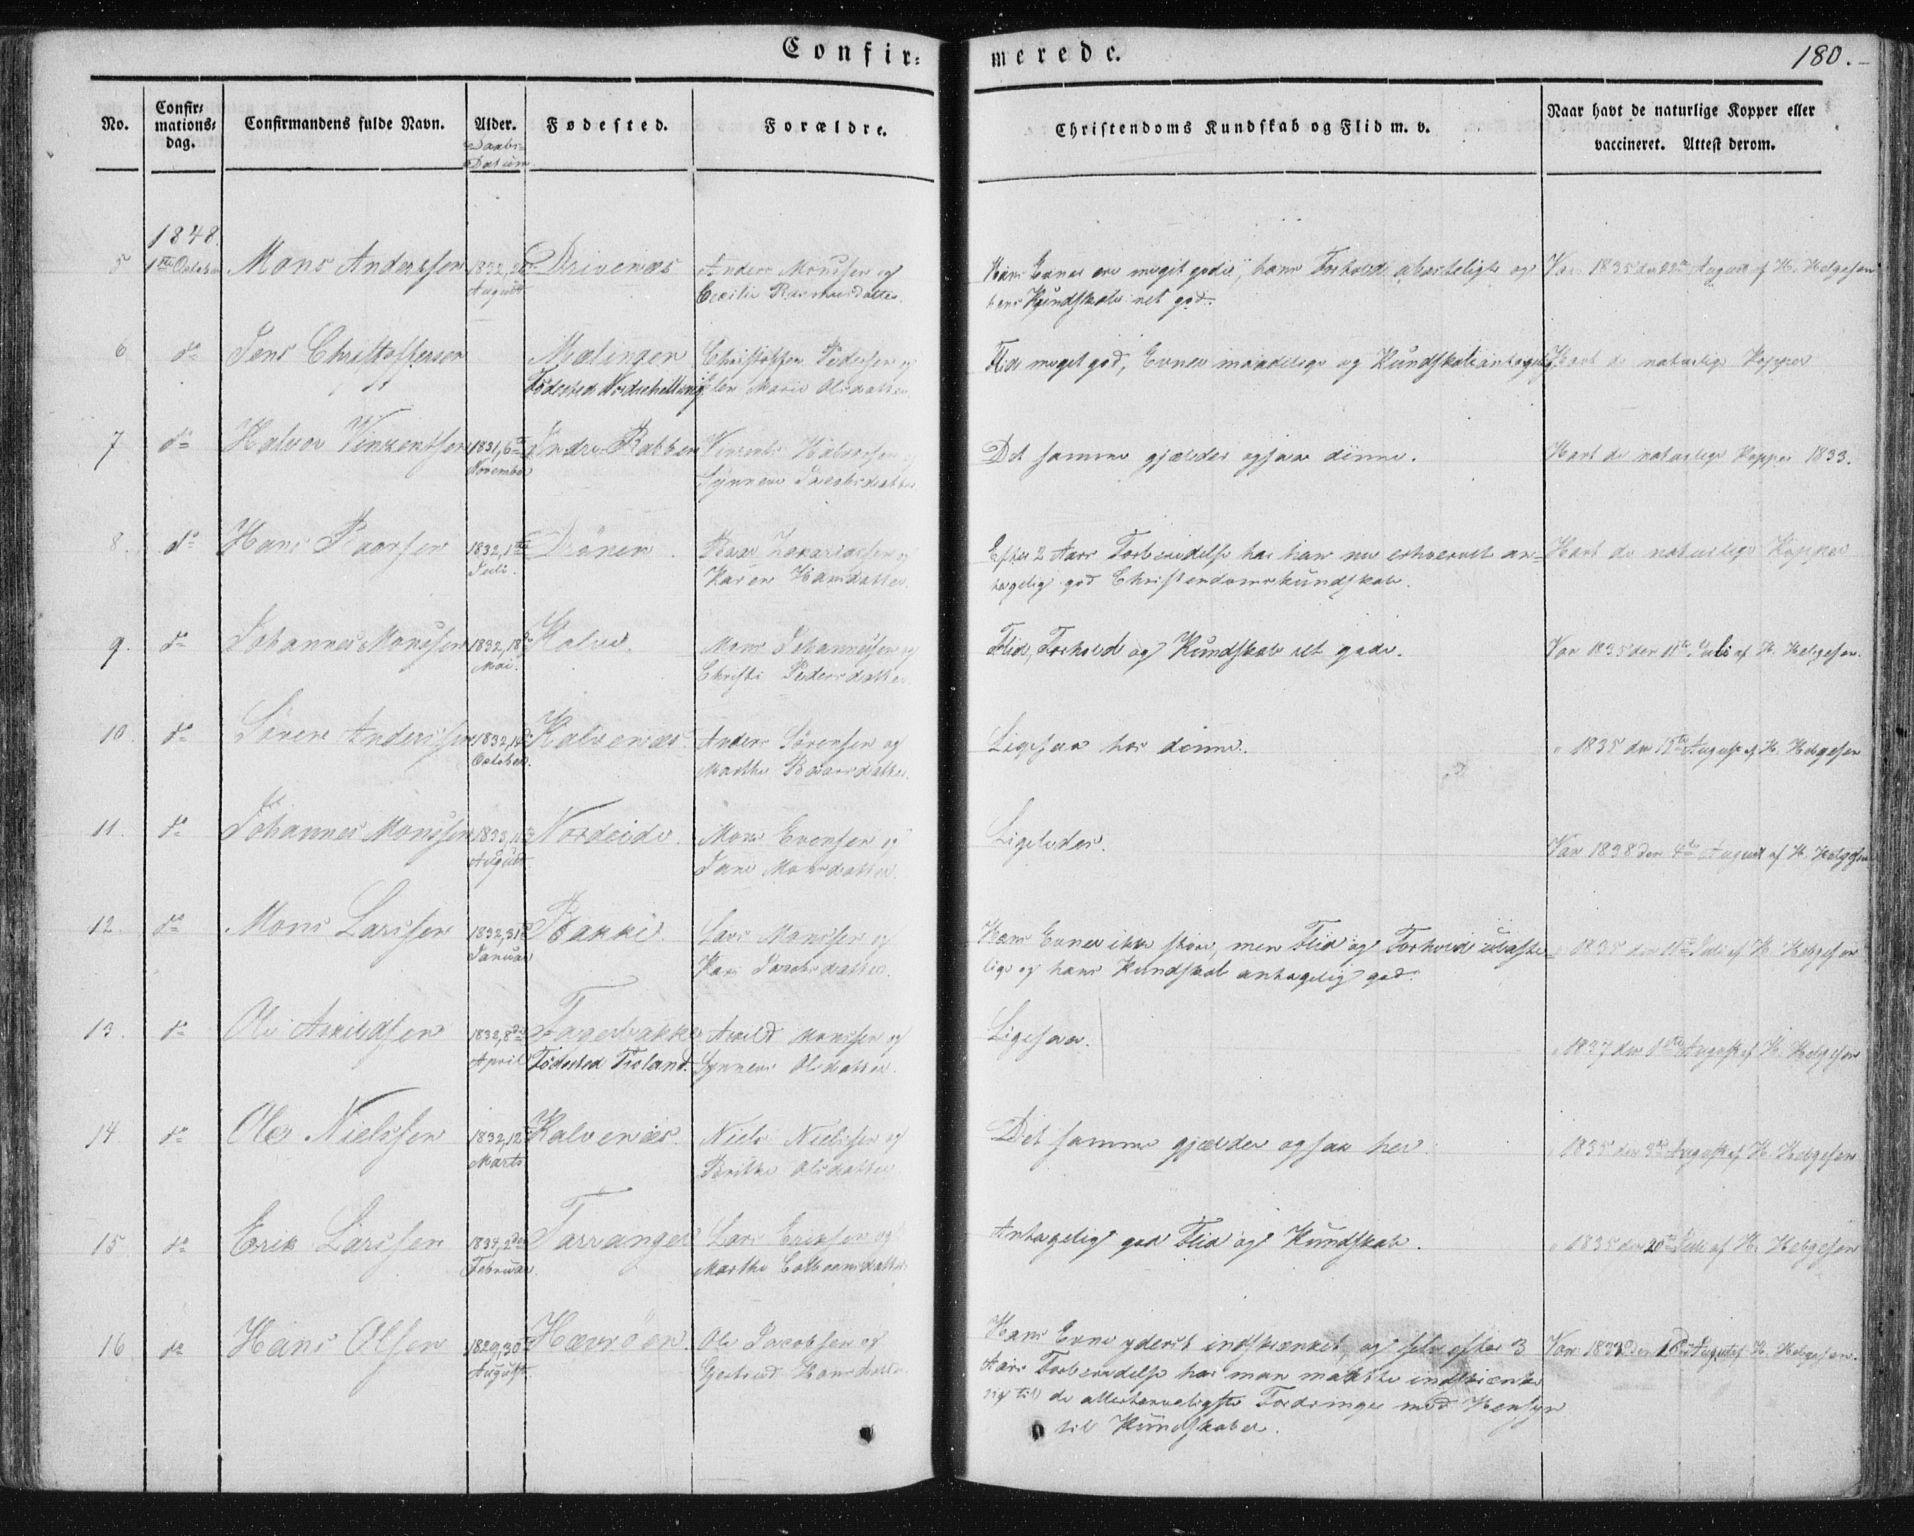 Confir: merede. 180.
No. Confir: mations: dag. Confirmandens fulde Navn. Alder. Fødested. Forældre. Christendoms Kundskab og Flid m. v. Naar havt de naturlige Kopper eller vaccineret. Attest derom.
Daabs-
Datum
1848
5 1ste October Mons Anderssen 1832, August Drivenæs Anders Monssen og
Cecilie Rasmusdatter.
Hans Evner ere meget gode, hans Forhold og
hans Kundskab ret god.
Var 1835 den 22de August af H. Helgesen
6 do Jens Christoffersen Mælingen Christoffer Pedersen og
Fødested Nordrehellevig Marie Olsdatter
Flid meget god, Evner maadelige og Kundskab antagelig. Havt de naturlige Kopper
7 do Halvor Vinzentsen 1831, 6te November Indre Bakken Vinzents Halvorsen og
Synneve Jacobsdatter
Det samme gjælder ogsaa denne. Havt de naturlige Kopper 1833.
8. do Hans Baarsen 1832, 1ste Juli. Drönen. Baar Zakariassen og
Karen Hansdatter.
Efter 2 Aars Forberedelse har han nu erhvervet an-
tagelig god Christendomskundskab.
Havt de naturlige Kopper
9. do Johannes Monssen 1832, 18de Mai. Kalve. Mons Johannessen og
Christi Pedersdatter
Flid, Forhold og Kundskab ret gode. Var 1835 den 11te Juli af H. Helgesen.
10. do Sören Anderssen 1832, October. Kalvenæs. Anders Sörensen og
Marthe
Ligesaa hos denne. " 1835 den 15de August af H. Helgesen
11. do Johannes Monssen 1833, August Nordeide. Mons Evensen og
Monsdatter.
Ligeledes. Var 1838 den 4de August af H. Helgesen
12. do Mons Larssen 1832, 31te Januar Bakke. Lars Monssen og
Kari Jacobsdatter.
Hans Evner ikke store, men Flid og Forhold ulaste-
lige og hans Kundskab antagelig god.
" 1835 den 11te Juli af H. Helgesen
13. do Ole Arildsen 1832, 8de April Fagerbakke Arild Monssen og
Fødested Frøland. Synneve Olsdatter.
Ligesaa. " 1837 den 1ste August af H. Helgesen
14 do Ole Nielssen 1832, 12te Marts Kalvenæs. Niels Nielssen og
Brithe Olsdatter
Det samme gjælder ogsaa her. " 1835 den 3die August af H. Helgesen
15 do Erik Larssen 1834, 2den Februar. Tarranger Lars Eriksen og
Marthe Colbeensdatter
Antagelig god Flid og Kundskab. " 1835 den 20de Juli af H. Helgesen
16 do Hans Olsen 1829, 30te August. Hævrøen. Ole Jacobsen og
Gjertrud Hansdatter
Hans Evne yderst indskrænket, og selv efter 3
Aars Forberedelse har man maattet indskrænke
sig til de allertarveligste Fordringer med Hensyn
til Kundskaber.
Var den August af H. Helgesen.